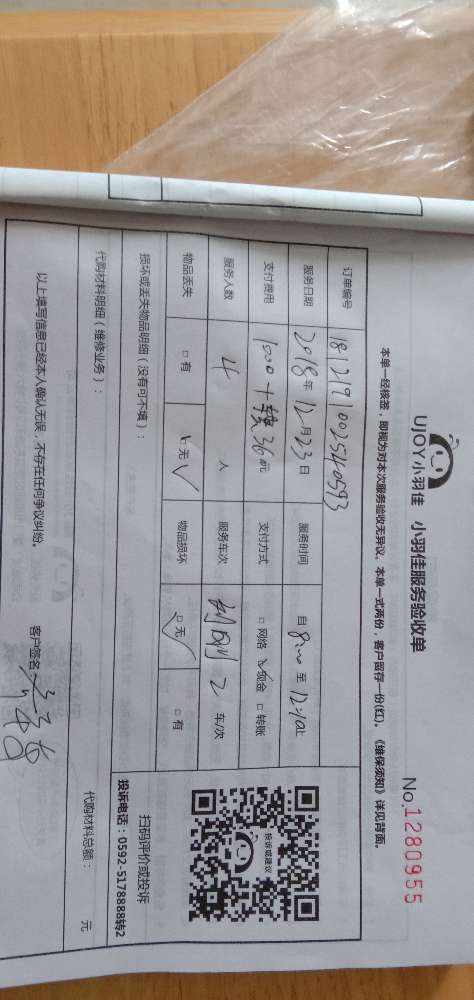 UJOY小羽佳 小羽佳服务验收单
No.1280955
本单一经核签，即视为对本次服务验收无异议，本单一式两份，客户留存一份(红)。《维保须知》详见背面。
订单编号 1812191002540593
服务日期 2018年12月23日 服务时间 自 8:00 至
支付费用 1000 元 支付方式 □网络 ☑现金 □转账
服务人数 4 人 服务车次 2 车/次
物品丢失 □有 ☑无 物品损坏 ☑无 □有
投诉或建议
扫码评价或投诉
投诉电话：0592-5178888转2
损坏或丢失物品明细（没有可不填）：
代购材料明细（维修业务）：
代购材料总额： 元
以上填写信息已经本人确认无误，不存在任何争议纠纷。
客户签名